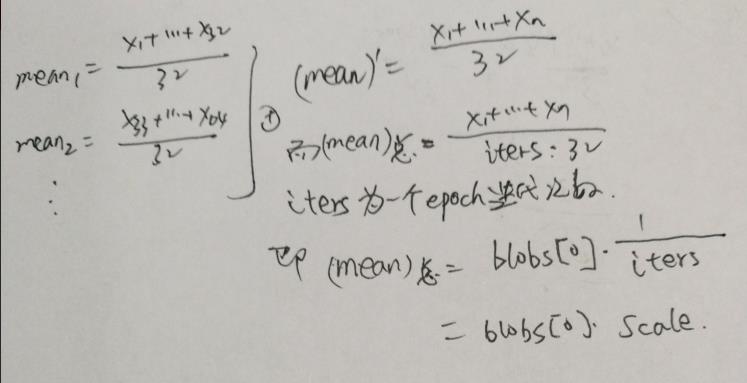 mean₁ = (x₁+···+x₃₂)/32
mean₂ = (x₃₃+···+x₆₄)/32
⋮
①
(mean)' = (x₁+···+xₙ)/32
而(mean)总 = (x₁+···+xₙ)/(iters·32)
iters为一个epoch迭代次数.
即 (mean)总 = blobs[0]·1/iters
= blobs[0]· scale.